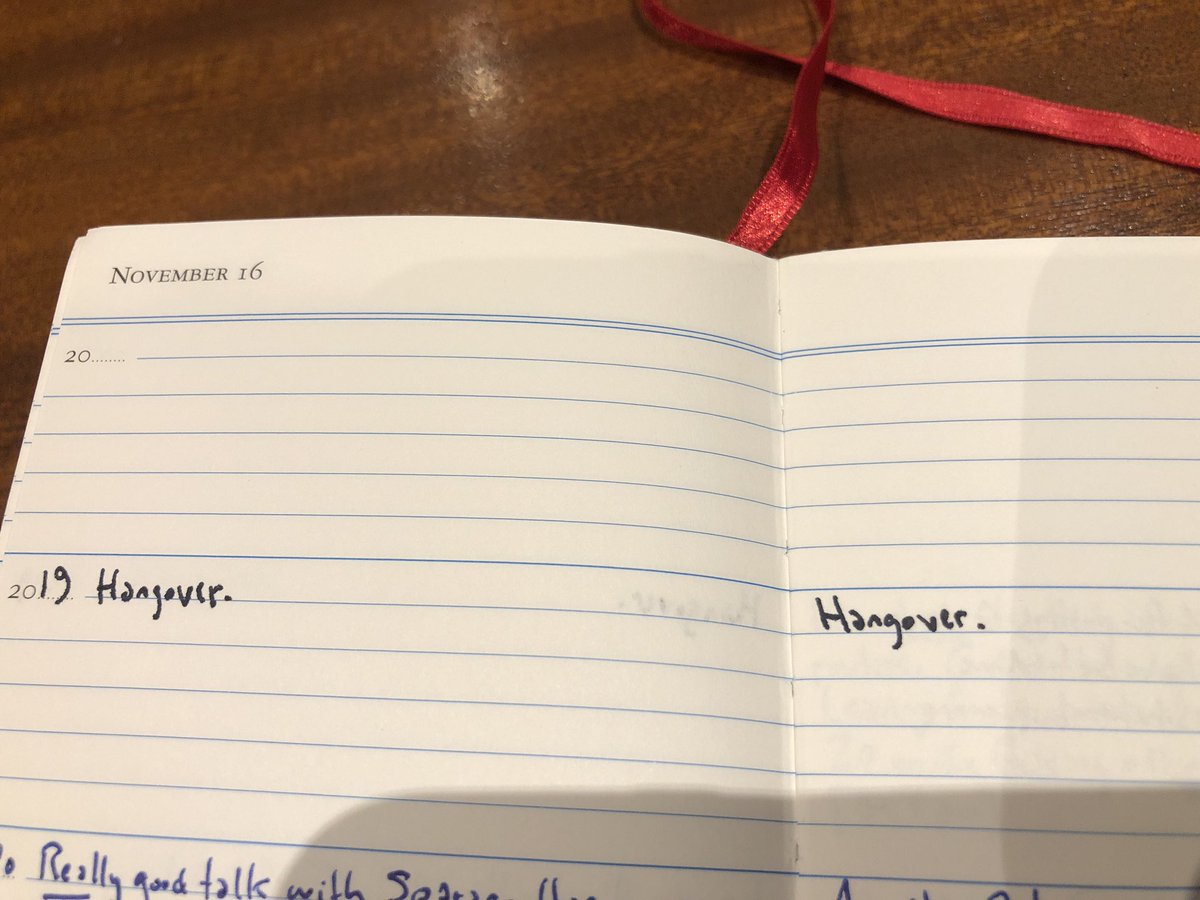 NOVEMBER 16
20........
2019 Hangover.
Hangover.
Really good talk with